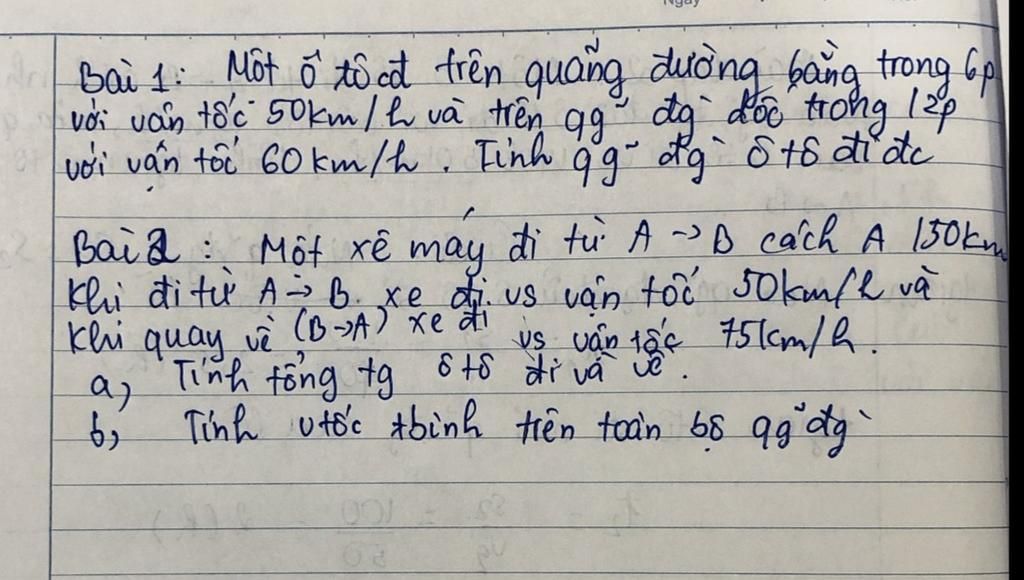 Ngày
Bài 1: Một ô tô cđ trên quãng đường bằng trong 6p
với vận tốc 50km/h và trên qg~ đg` dốc trong 12p
với vận tốc 60km/h. Tính qg~ đg` ô tô đi đc
Bài 2: Một xe máy đi từ A → B cách A 150km
Khi đi từ A → B xe đi vs vận tốc 50km/h và
Khi quay về (B→A) xe đi vs vận tốc 75km/h.
a, Tính tổng tg ô tô đi và về.
b, Tính vtốc tbình trên toàn bộ qg~ đg`